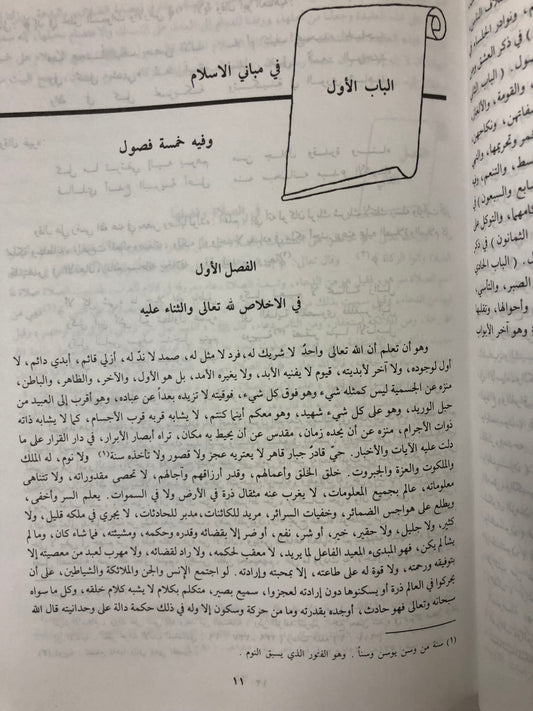 الباب الأول
في مباني الاسلام
وفيه خمسة فصول
الفصل الأول
في الاخلاص لله تعالى والثناء عليه
وهو أن تعلم أن الله تعالى واحدٌ لا شريك له، فرد لا مثل له، صمد لا ندّ له، أزلي قائم، أبدي دائم، لا
أول لوجوده، ولا آخر لأبديته، قيوم لا يفنيه الأبد، ولا يغيره الأمد، بل هو الأول، والآخر، والظاهر، والباطن،
منزه عن الجسمية ليس كمثله شيء وهو فوق كل شيء، فوقيته لا تزيده بعداً عن عباده، وهو أقرب إلى العبيد من
حبل الوريد، وهو على كل شيء شهيد، وهو معكم أينما كنتم، لا يشابه قربه قرب الأجسام، كما لا يشابه ذاته
ذوات الأجرام، منزه عن أن يحده زمان، مقدس عن أن يحيط به مكان، تراه أبصار الأبرار، في دار القرار على ما
دلت عليه الآيات والأخبار. حيّ قادرٌ جبار قاهر لا يعتريه عجز ولا قصور ولا تأخذه سنة(١) ولا نوم، له الملك
والملكوت والعزة والجبروت. خلق الخلق وأعمالهم، وقدر أرزاقهم وآجالهم، لا تحصى مقدوراته، ولا تتناهى
معلوماته، عالم بجميع المعلومات، لا يعزب عنه مثقال ذرة في الأرض ولا في السموات. يعلم السر وأخفى،
ويطلع على هواجس الضمائر، وخفيات السرائر، مريد للكائنات، مدبر للحادثات، لا يجري في ملكه قليل، ولا
كثير، ولا جليل، ولا حقير، خير، أو شر، نفع، أو ضر إلا بقضائه وقدره وحكمه، ومشيئته، فما شاء كان، وما لم
يشأ لم يكن، فهو المبدىء المعيد الفاعل لما يريد، لا معقب لحكمه، ولا راد لقضائه، ولا مهرب لعبد من معصيته إلا
بتوفيقه ورحمته، ولا قوة له على طاعته، إلا بمحبته وإرادته. لو اجتمع الإنس والجن والملائكة والشياطين، على أن
يحركوا في العالم ذرة أو يسكنوها دون إرادته لعجزوا، سميع بصير، متكلم بكلام لا يشبه كلام خلقه، وكل ما سواه
سبحانه وتعالى فهو حادث، أوجده بقدرته وما من حركة وسكون إلا وله في ذلك حكمة دالة على وحدانيته قال الله
(١) سنة من وسن يوسن وسناً. وهو الفتور الذي يسبق النوم.
١١